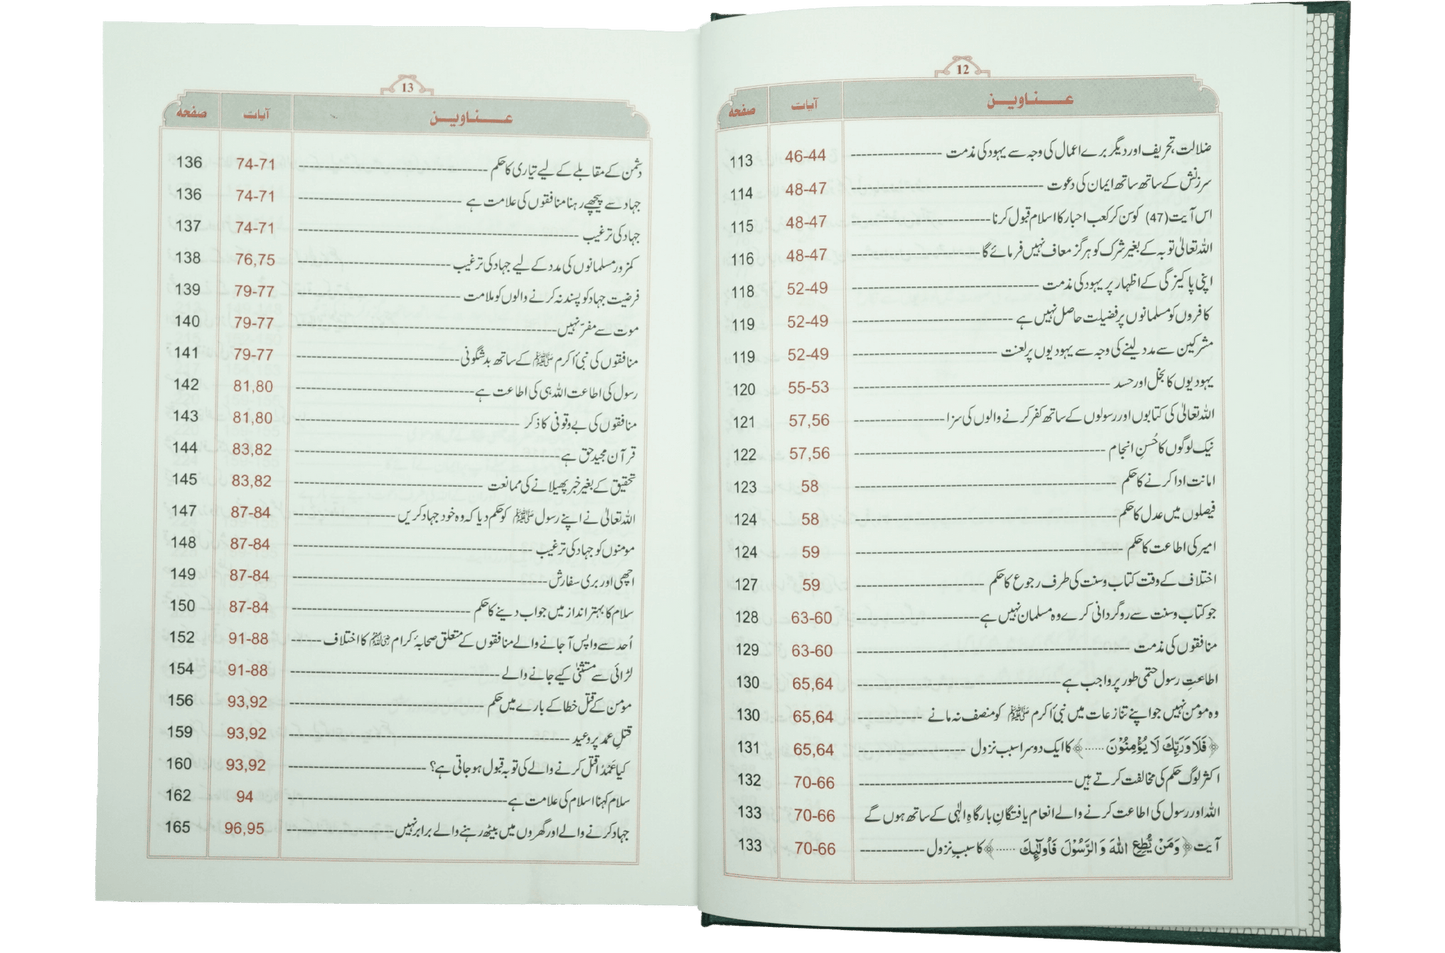 12
عناوین آیات صفحہ
ضلالت، تحریف اور دیگر برے اعمال کی وجہ سے یہود کی مذمت 46-44 113
سرزنش کے ساتھ ساتھ ایمان کی دعوت 48-47 114
اس آیت (47) کو سن کر کعب احبار کا اسلام قبول کرنا 48-47 115
اللہ تعالیٰ توبہ کے بغیر شرک کو ہرگز معاف نہیں فرمائے گا 48-47 116
اپنی پاکیزگی کے اظہار پر یہود کی مذمت 52-49 118
کافروں کو مسلمانوں پر فضیلت حاصل نہیں ہے 52-49 119
مشرکین سے مدد لینے کی وجہ سے یہودیوں پر لعنت 52-49 119
یہودیوں کا بخل اور حسد 55-53 120
اللہ تعالیٰ کی کتابوں اور رسولوں کے ساتھ کفر کرنے والوں کی سزا 57,56 121
نیک لوگوں کا حُسنِ انجام 57,56 122
امانت ادا کرنے کا حکم 58 123
فیصلوں میں عدل کا حکم 58 124
امیر کی اطاعت کا حکم 59 124
اختلاف کے وقت کتاب و سنت کی طرف رجوع کا حکم 59 127
جو کتاب و سنت سے روگردانی کرے وہ مسلمان نہیں ہے 63-60 128
منافقوں کی مذمت 63-60 129
اطاعتِ رسول حتمی طور پر واجب ہے 65,64 130
وہ مومن نہیں جو اپنے تنازعات میں نبیٔ اکرم ﷺ کو منصف نہ مانے 65,64 130
﴿فَلَا وَرَبِّكَ لَا يُؤْمِنُوْنَ ......﴾ کا ایک دوسرا سبب نزول 65,64 131
اکثر لوگ حکم کی مخالفت کرتے ہیں 70-66 132
اللہ اور رسول کی اطاعت کرنے والے انعام یافتگانِ بارگاہِ الٰہی کے ساتھ ہوں گے 70-66 133
آیت ﴿وَمَنْ يُّطِعِ اللّٰهَ وَالرَّسُوْلَ فَاُولٰٓئِكَ ......﴾ کا سببِ نزول 70-66 133
13
عناوین آیات صفحہ
دشمن کے مقابلے کے لیے تیاری کا حکم 74-71 136
جہاد سے پیچھے رہنا منافقوں کی علامت ہے 74-71 136
جہاد کی ترغیب 74-71 137
کمزور مسلمانوں کی مدد کے لیے جہاد کی ترغیب 76,75 138
فرضیت جہاد کو پسند نہ کرنے والوں کو ملامت 79-77 139
موت سے مفرّ نہیں 79-77 140
منافقوں کی نبیٔ اکرم ﷺ کے ساتھ بدشگونی 79-77 141
رسول کی اطاعت اللہ ہی کی اطاعت ہے 81,80 142
منافقوں کی بے وقوفی کا ذکر 81,80 143
قرآن مجید حق ہے 83,82 144
تحقیق کے بغیر خبر پھیلانے کی ممانعت 83,82 145
اللہ تعالیٰ نے اپنے رسول ﷺ کو حکم دیا کہ وہ خود جہاد کریں 87-84 147
مومنوں کو جہاد کی ترغیب 87-84 148
اچھی اور بری سفارش 87-84 149
سلام کا بہتر انداز میں جواب دینے کا حکم 87-84 150
اُحد سے واپس آ جانے والے منافقوں کے متعلق صحابۂ کرام کا اختلاف 91-88 152
لڑائی سے مستثنیٰ کیے جانے والے 91-88 154
مومن کے قتل خطا کے بارے میں حکم 93,92 156
قتلِ عمد پر وعید 93,92 159
کیا عَمْدًا قتل کرنے والے کی توبہ قبول ہو جاتی ہے؟ 93,92 160
سلام کہنا اسلام کی علامت ہے 94 162
جہاد کرنے والے اور گھروں میں بیٹھ رہنے والے برابر نہیں 96,95 165